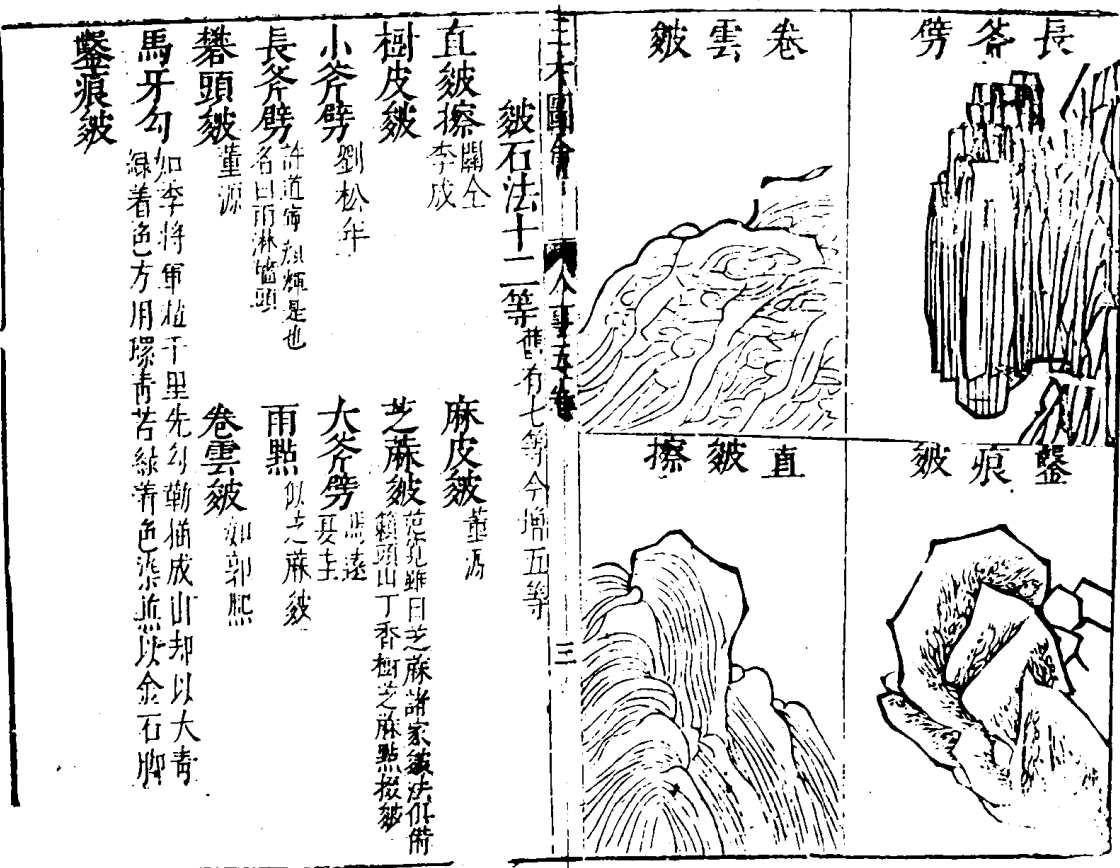 長斧劈
卷雲皴
鑿痕皴
直皴擦
三才圖會
人事五卷
三
皴石法十二等
舊有七等今增五等
直皴擦
關仝
李成
麻皮皴
董源
樹皮皴
芝蔴皴
范寬雖曰芝蔴諸家皴法俱備
頭山丁香樹芝蔴點掇皴
小斧劈
劉松年
大斧劈
馬遠
夏圭
長斧劈
許道寧顏輝是也
名曰雨淋墻頭
雨點
似芝蔴皴
礬頭皴
董源
卷雲皴
如郭熙
馬牙勾
如李將軍趙千里先勾勒描成山却以大青
綠着色方用螺青苔綠着色染然以金石脚
鑿痕皴